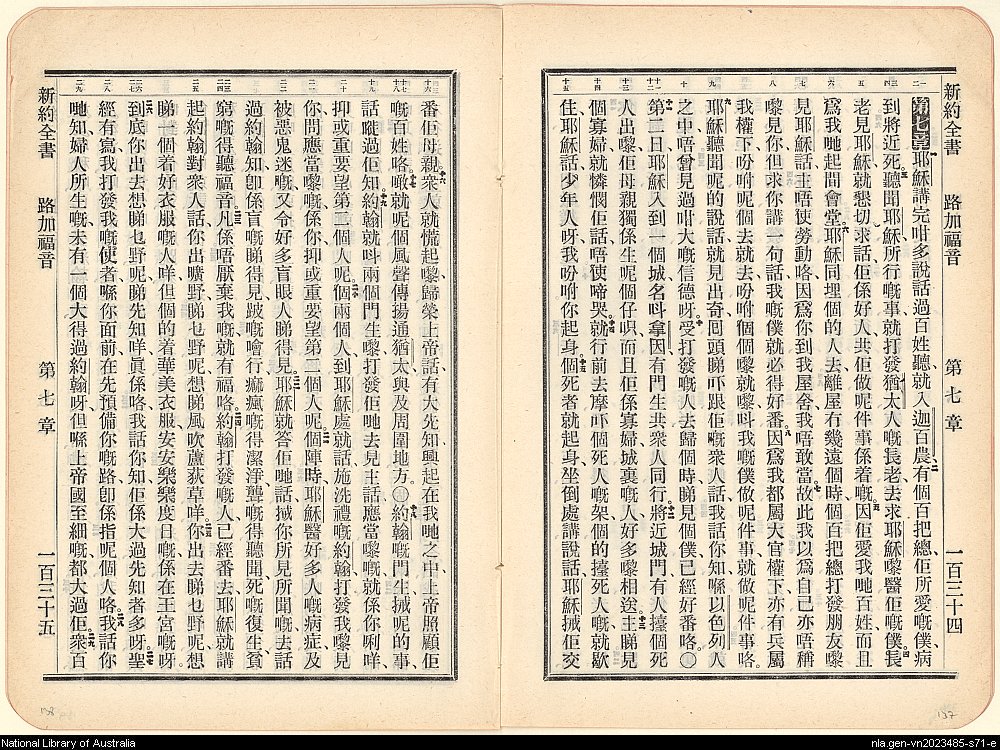 新約全書 路加福音 第七章 一百三十四
第七章耶穌講完咁多說話過百姓聽就入迦百農有個百把總佢所愛嘅僕病
到將近死聽聞耶穌所行嘅事就打發猶太人嘅長老去求耶穌嚟醫佢嘅僕長
老見耶穌就懇切求話佢係好人共佢做呢件事係着嘅因佢愛我哋百姓而且
爲我哋起間會堂耶穌同埋個的人去離屋有幾遠個時個百把總打發朋友嚟
見耶穌話主唔使勞動咯因爲你到我屋舍我唔敢當故此我以爲自己亦唔稱
嚟見你但求你講一句話我嘅僕就必得好番因爲我都屬大官權下亦有兵屬
我權下吩咐呢個去就去吩咐個個嚟就嚟呌我嘅僕做呢件事就做呢件事咯
耶穌聽聞呢的說話就見出奇囘頭睇吓跟佢嘅衆人話我話你知喺以色列人
之中唔曾見過咁大嘅信德呀受打發嘅人去歸個時睇見個僕已經好番咯〇
第二日耶穌入到一個城名呌拿因有門生共衆人同行將近城門有人擡個死
人出嚟佢母親獨係生呢個仔唄而且佢係寡婦城裏嘅人好多嚟相送主睇見
個寡婦就憐憫佢話唔使啼哭就行前去摩吓個死人嘅架個的擡死人嘅就歇
住耶穌話少年人呀我吩咐你起身個死者就起身坐倒處講說話耶穌搣佢交
番佢母親衆人就慌起嚟歸榮上帝話有大先知興起在我哋之中上帝照顧佢
嘅百姓咯噉就呢個風聲傳揚通猶太與及周圍地方〇約翰嘅門生搣呢的事
話嗮過佢知約翰就呌兩個門生嚟打發佢哋去見主話應當嚟嘅就係你唎咩
抑或重要望第二個人呢個兩個人到耶穌處就話施洗禮嘅約翰打發我嚟見
你問應當嚟嘅係你抑或重要望第二個人呢個陣時耶穌醫好多人嘅病症及
被惡鬼迷嘅又令好多盲眼人睇得見耶穌就答佢哋話搣你所見所聞嘅去話
過約翰知卽係盲嘅睇得見跛嘅噲行癲瘋嘅得潔淨聾嘅得聽聞死嘅復生貧
窮嘅得聽福音凡係唔厭棄我嘅就有福咯約翰打發嘅人已經番去耶穌就講
起約翰對衆人話你出曠野睇乜野呢想睇風吹蘆荻草咩你出去睇乜野呢想
睇一個着好衣服嘅人咩但個的着華美衣服安安樂樂度日嘅係在王宮嘅呀
到底你出去想睇乜野呢睇先知咩眞係咯我話你知佢係大過先知者多呀聖
經有寫我打發我嘅使者喺你面前在先預備你嘅路卽係指呢個人咯我話你
哋知婦人所生嘅未有一個大得過約翰呀但喺上帝國至細嘅都大過佢衆百
新約全書 路加福音 第七章 一百三十五
138
137
National Library of Australia
nla.gen-vn2023485-s71-e